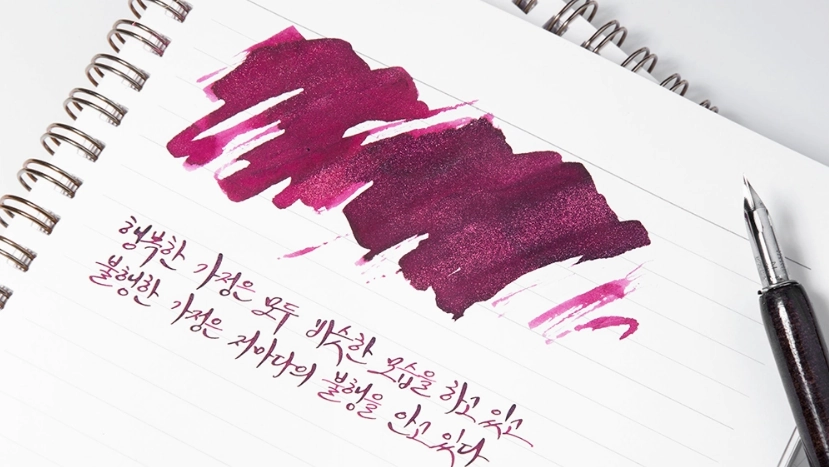 행복한 가정은 모두 비슷한 모습을 하고 있고
불행한 가정은 저마다의 불행을 안고 있다